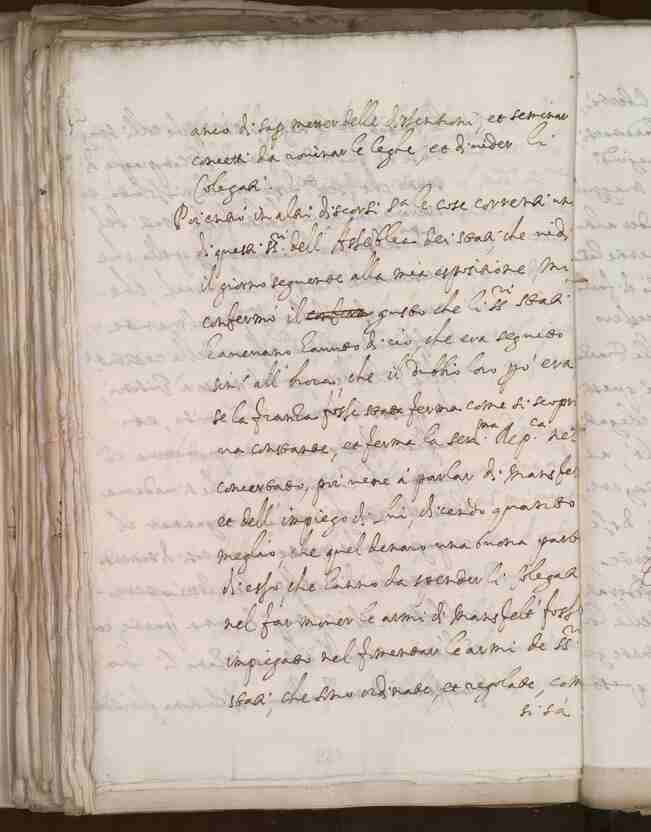 ancio di sup metter delle dissentioni, et seminar
concetti da rovinar le leghe, et divider li
Colegati.
Poi entrò in altri discorsi sa le cose correnti un
di questi ssri dell' Assemblea dei stati che vidi
il giorno seguente alla mia espositione, mi
confermò il gusto che li ssri stati
havevano havuto di ciò, che era seguito
sin' all' hora, che il dubbio loro era
se la franza fosse stata ferma come si scopri
va constante, et ferma la serma Repca nel
concertato, poi vene à parlar di Mansfelt
et dell' impiego di lui, dicendo quanto
meglio, che quel denaro una buona parte
di esso, che hanno da spender li Colegati
nel far mover le armi di Mansfelt fosse
impiegato nel fomentar le armi de ssri
stati, che sono ordinate, et regolate, com
si sà